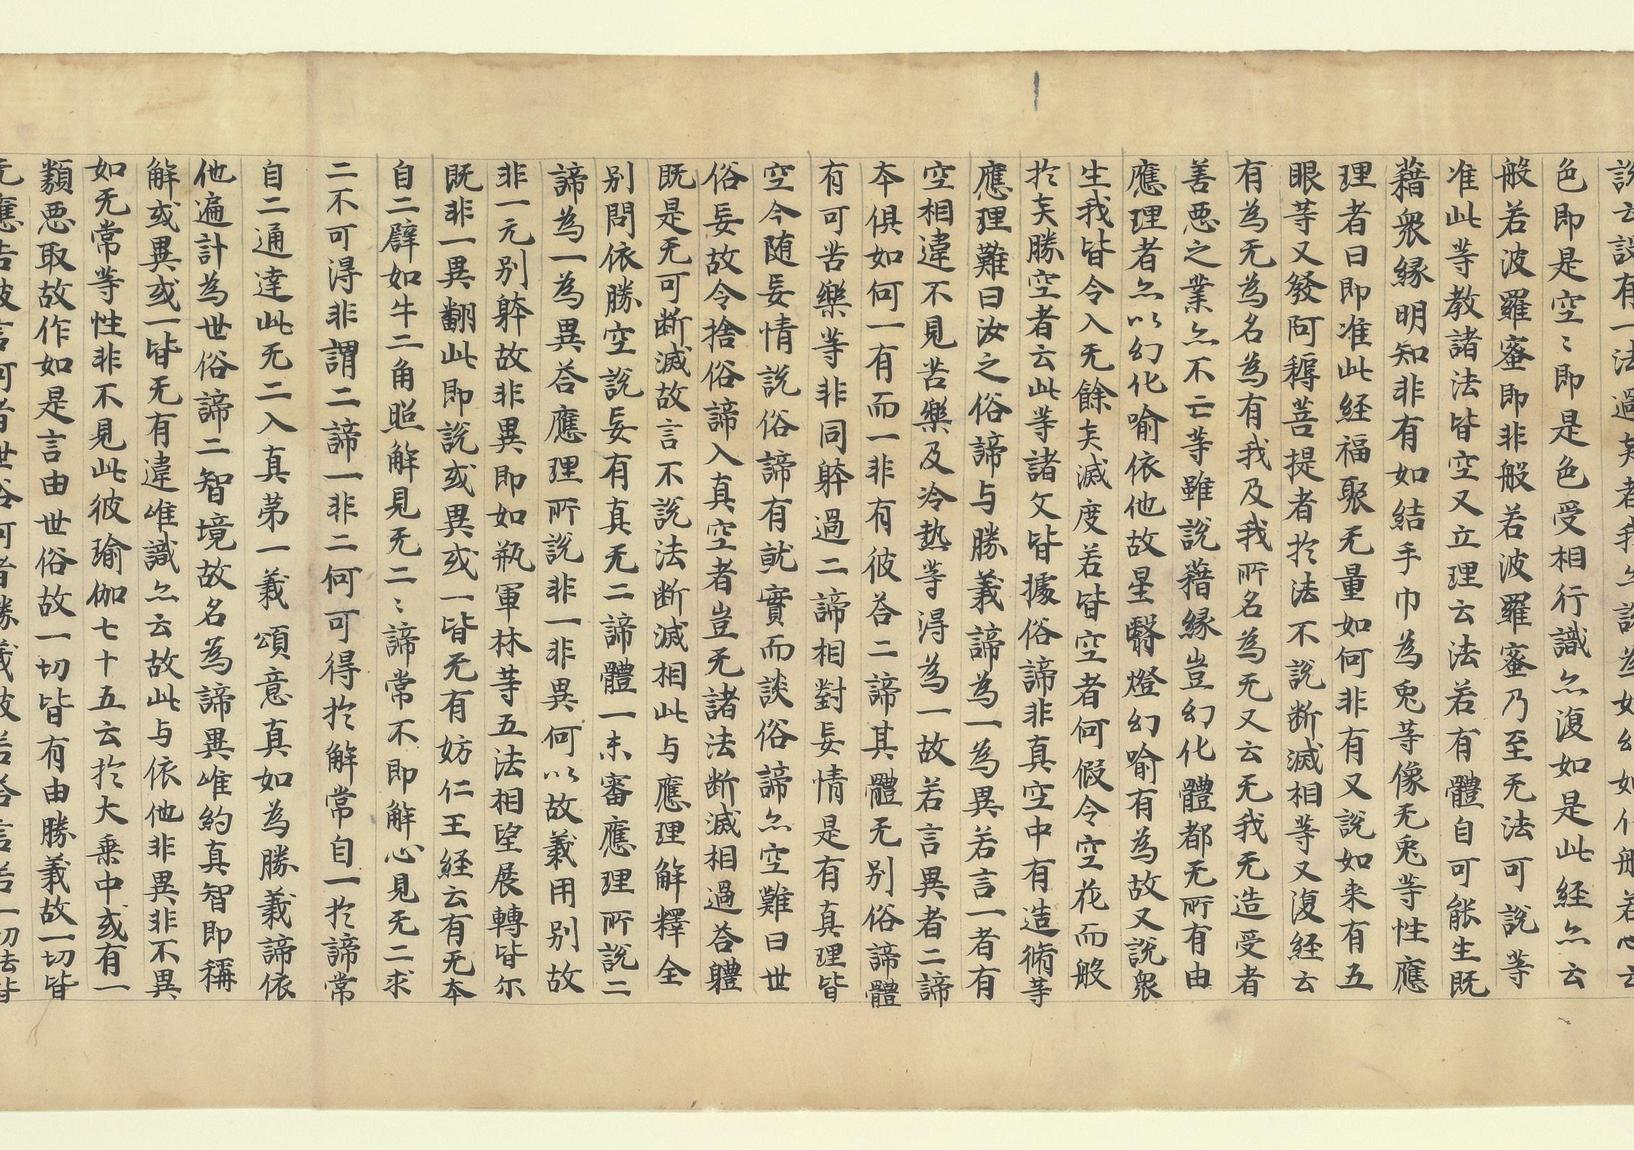 說去設有一法過
色即是空〻即是色受相行識亦復如是此経亦云
般若波羅蜜即非般若波羅蜜乃至无法可說等
准此等教諸法皆空又立理云法若有體自可能生既
藉衆緣明知非有如結手巾為兎等像无兎等性應
理者曰即准此経福聚无量如何非有又說如来有五
眼等又發阿耨菩提者扵法不說断滅相等又復経云
有為无為名為有我及我所名為无又云无我无造受者
善悪之業亦不亡等雖說藉緣豈幻化體都无所有由
應理者亦以幻化喻依他故星翳燈幻喻有為故又說衆
生我皆令入无餘矣滅度若皆空者何假令空花而般
扵矣勝空者云此等諸文皆據俗諦非真空中有造脩等
應理難曰汝之俗諦与勝義諦為一為異若言一者有
空相違不見苦樂及冷熱等淂為一故若言異者二諦
夲俱如何一有而一非有彼答二諦其體无别俗諦體
有可苦樂等非同躰過二諦相對妄情是有真理皆
空今随妄情說俗諦有就實而談俗諦亦空難曰世
俗妄故令捨俗諦入真空者豈无諸法断滅相過答軆
既是无可断滅故言不說法断滅相此与應理解釋全
别問依勝空說妄有真无二諦體一未審應理所說二
諦為一為異答應理所說非一非異何以故義用别故
非一元别躰故非異即如瓶軍林等五法相望展轉皆尔
既非一異翻此即說或異或一皆无有妨仁王経云有无夲
自二譬如牛二角照解見无二〻諦常不即解心見无二求
二不可淂非謂二諦一非二何可得扵解常自一扵諦常
自二通達此无二入真苐一義頌意真如為勝義諦依
他遍計為世俗諦二智境故名為諦異唯約真智即稱
解或異或一皆无有違唯識亦云故此与依他非異非不異
如无常等性非不見此彼瑜伽七十五云扵大乗中或有一
類悪取故作如是言由世俗故一切皆有由勝義故一切皆
无應告彼言何者世俗何者勝義彼若答言若一切法皆